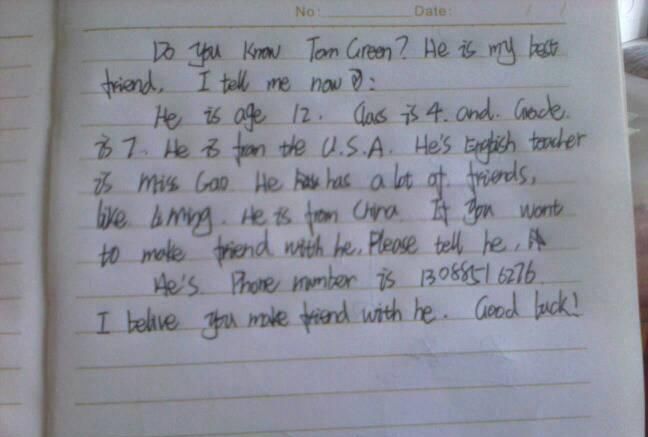 No: Date: / /
Do you know Tom Green? He is my best
friend. I tell me now:
He is age 12. Class is 4. and. Grade.
is 7. He is from the U.S.A. He's English teacher
is miss Gao He has a lot of friends,
like Li ming. He is from China. If you want
to make friend with he. Please tell he.
He's Phone number is 13088516276
I belive you make friend with he. Good luck!